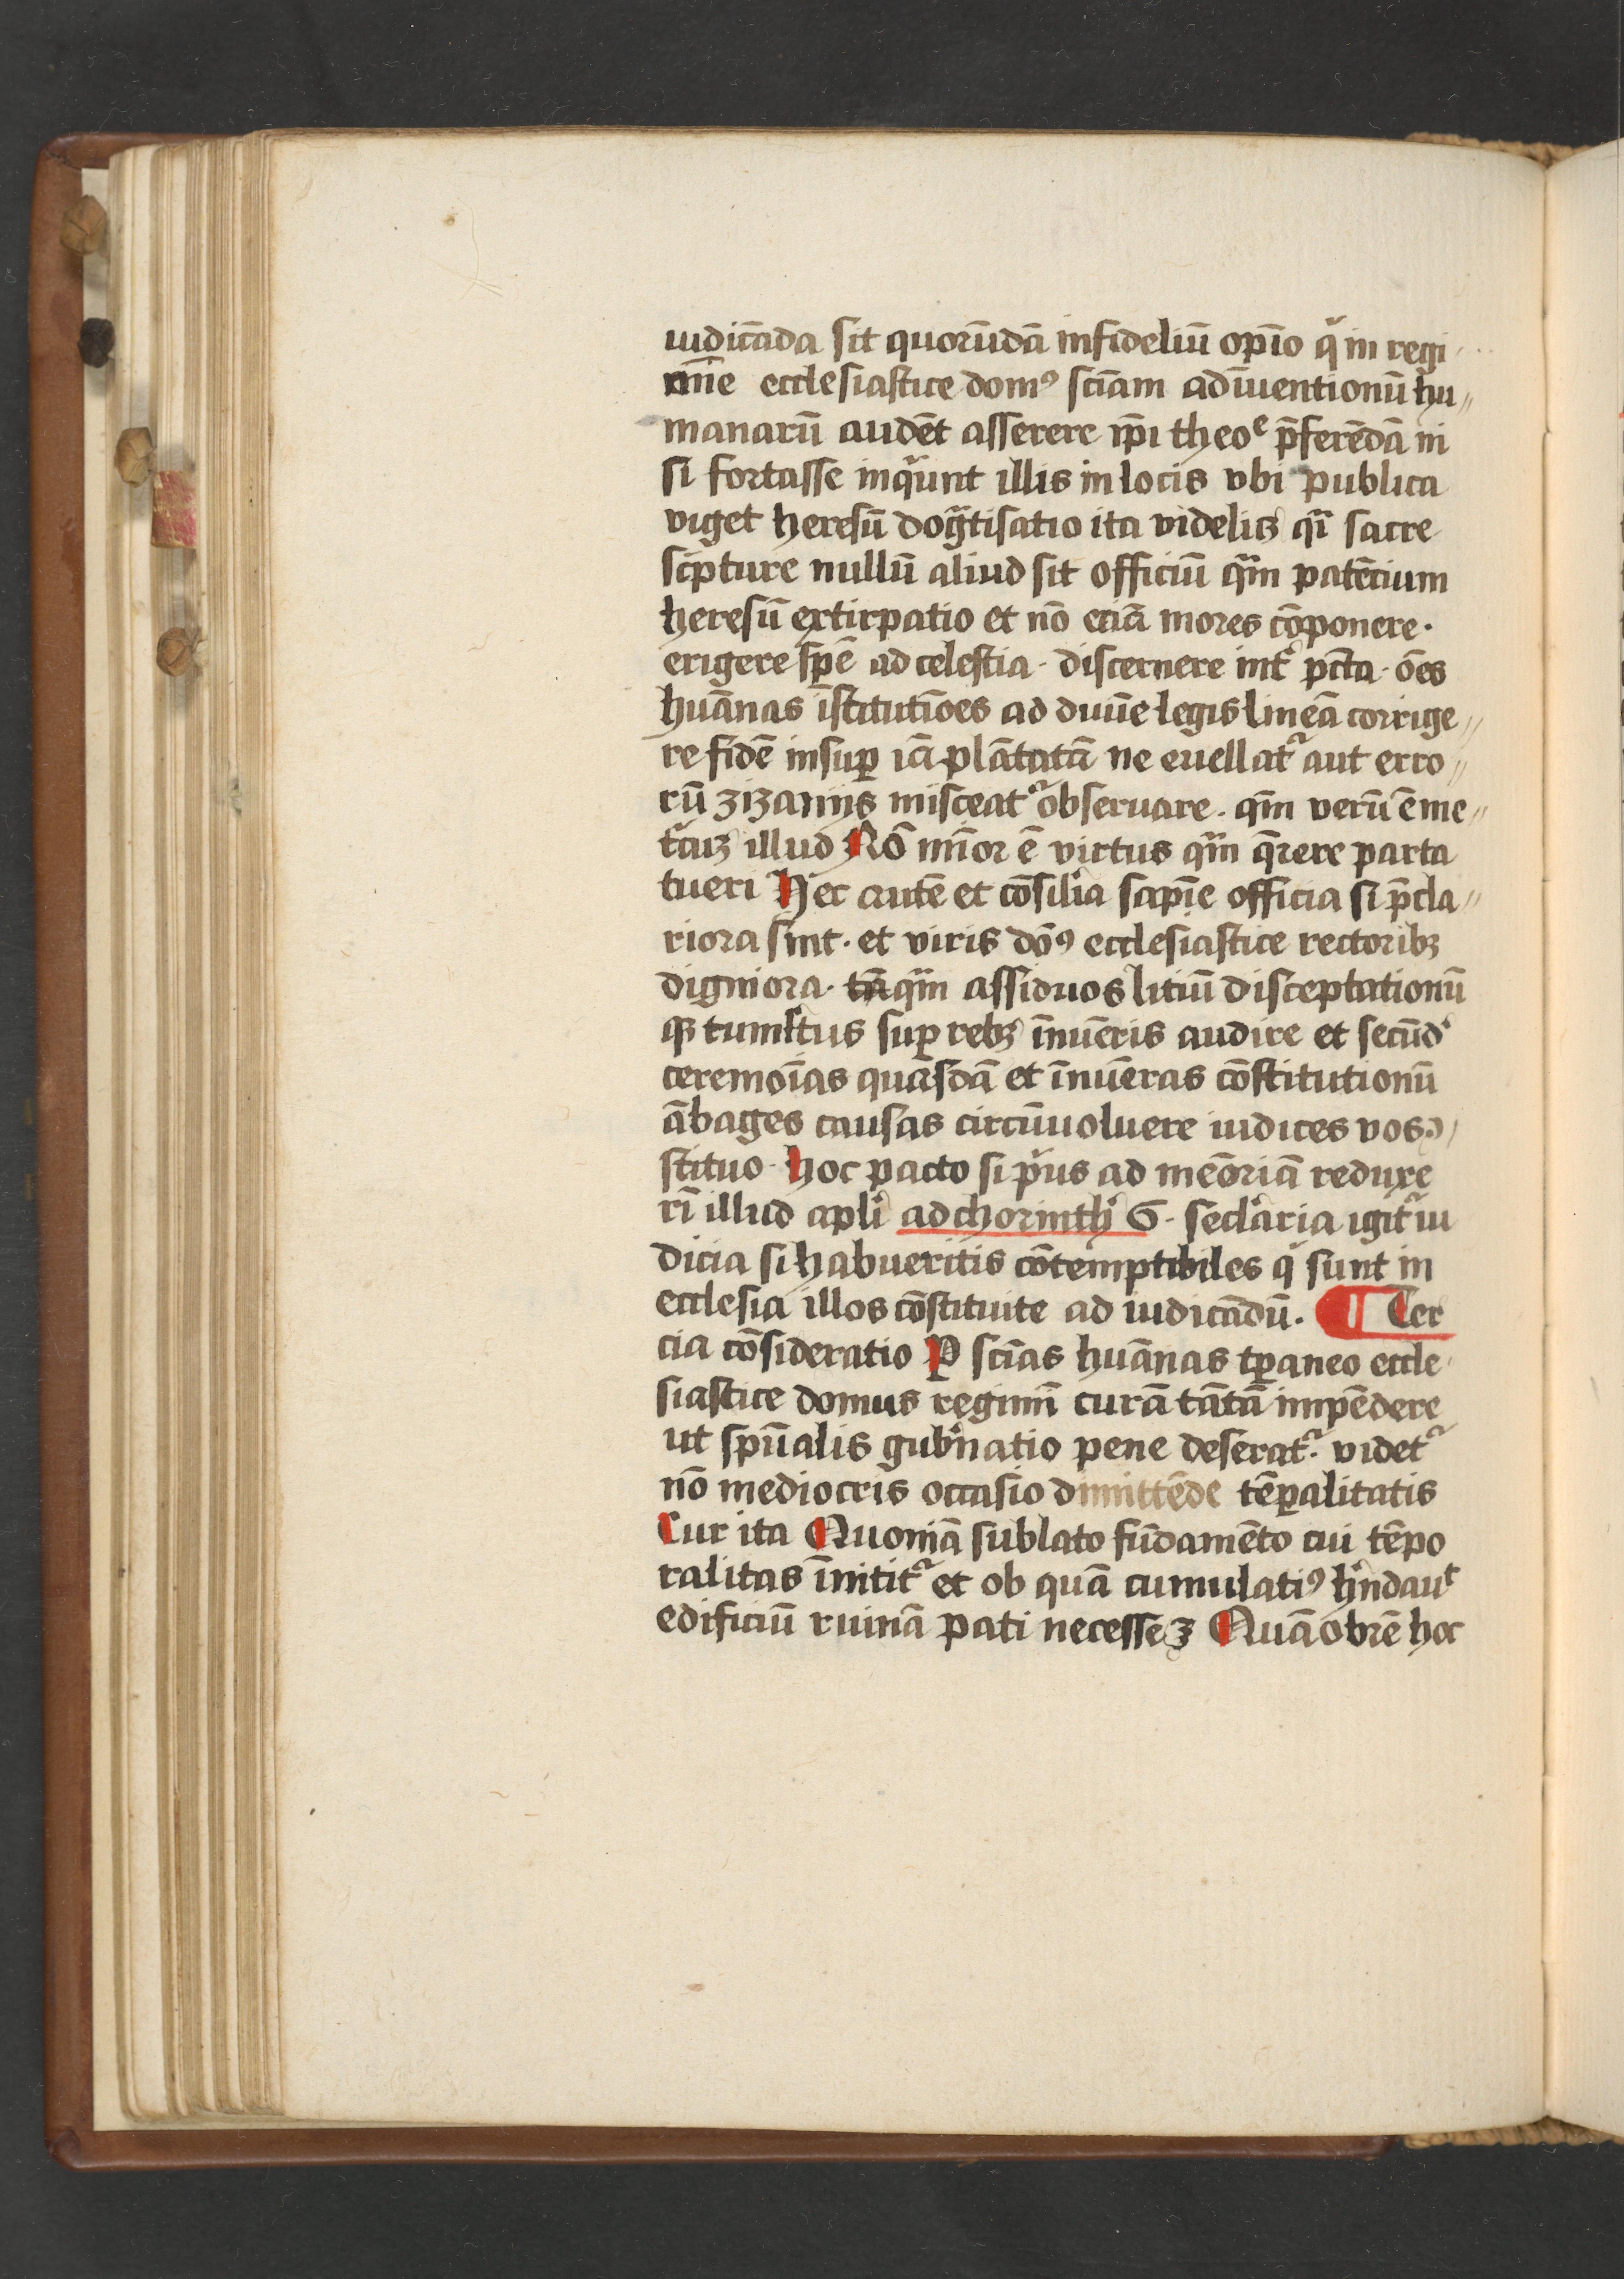 iudicãda sit quorũdã infideliũ opĩo qͥ in regi
mĩe ecclesiastice domꝰ sciam adĩuentionũ hu
manarũ audẽt asserere ip̃i theoᵉ p̃ferẽdã ni
si fortasse inqͥunt illis in locis vbi publica
viget heresũ dogᵃtisatio ita videlicꝫ qͣi sacre
scͥpture nullũ aliud sit officiũ qᷓm patẽcium
heresũ extirpatio et nõ eciã mores cõponere·
erigere spẽ ad celestia· discernere intͥ pctã· oẽs
huãnas ĩstitutiões ad diuĩe legis lineã corrige
re fidẽ insuꝑ iã plãtatã ne euellatᷣ aut erro
rũ zizaniis misceatᷣ obseruare· qm̃ verũ ẽ me
tͥcuꝫ illud Nõ mĩor ẽ virtus qᷓm q̃rere parta
tueri Hec autẽ et cõsilͥa sapĩe officia si p̃cla
riora sint· et viris doõꝰ ecclesiastice rectoribꝫ
digniora· qᷓm assiduos litiũ disceptationũ
qꝫ tumͥtus suꝑ rebꝫ ĩnuẽris audire et secũdͥ
ceremoĩas quasdã et ĩnuẽras cõstitutionũ
ãbages causas circũuoluere iudices vos ꝯ
stituo· hoc pacto si pͥus ad meõriã reduxe
rĩ illud aplͥi ad chorinthͥ 6· seclͥaria igitᷣ iu
dicia si habueritis cõtemptibiles qͥ sunt in
ecclesia illos cõstituite ad iudicãdũ· ¶ Ter
cia cõsideratio P sciãs huãnas tp̃aneo eccle
siastice domus regimĩ curã tãtã impẽdere
ut spũalis gubͥnatio pene deseratᷣ· videtᷣ
nõ mediocris occasio dimittẽde tẽꝑalitatis
Cur ita Quoniã sublato fũdamẽto cui tẽpo
ralitas ĩnititᷣ et ob quã cumulatiꝰ hͥndauᵗ
edificiũ ruinã pati necesse ꝫ Quã obrẽ hoc